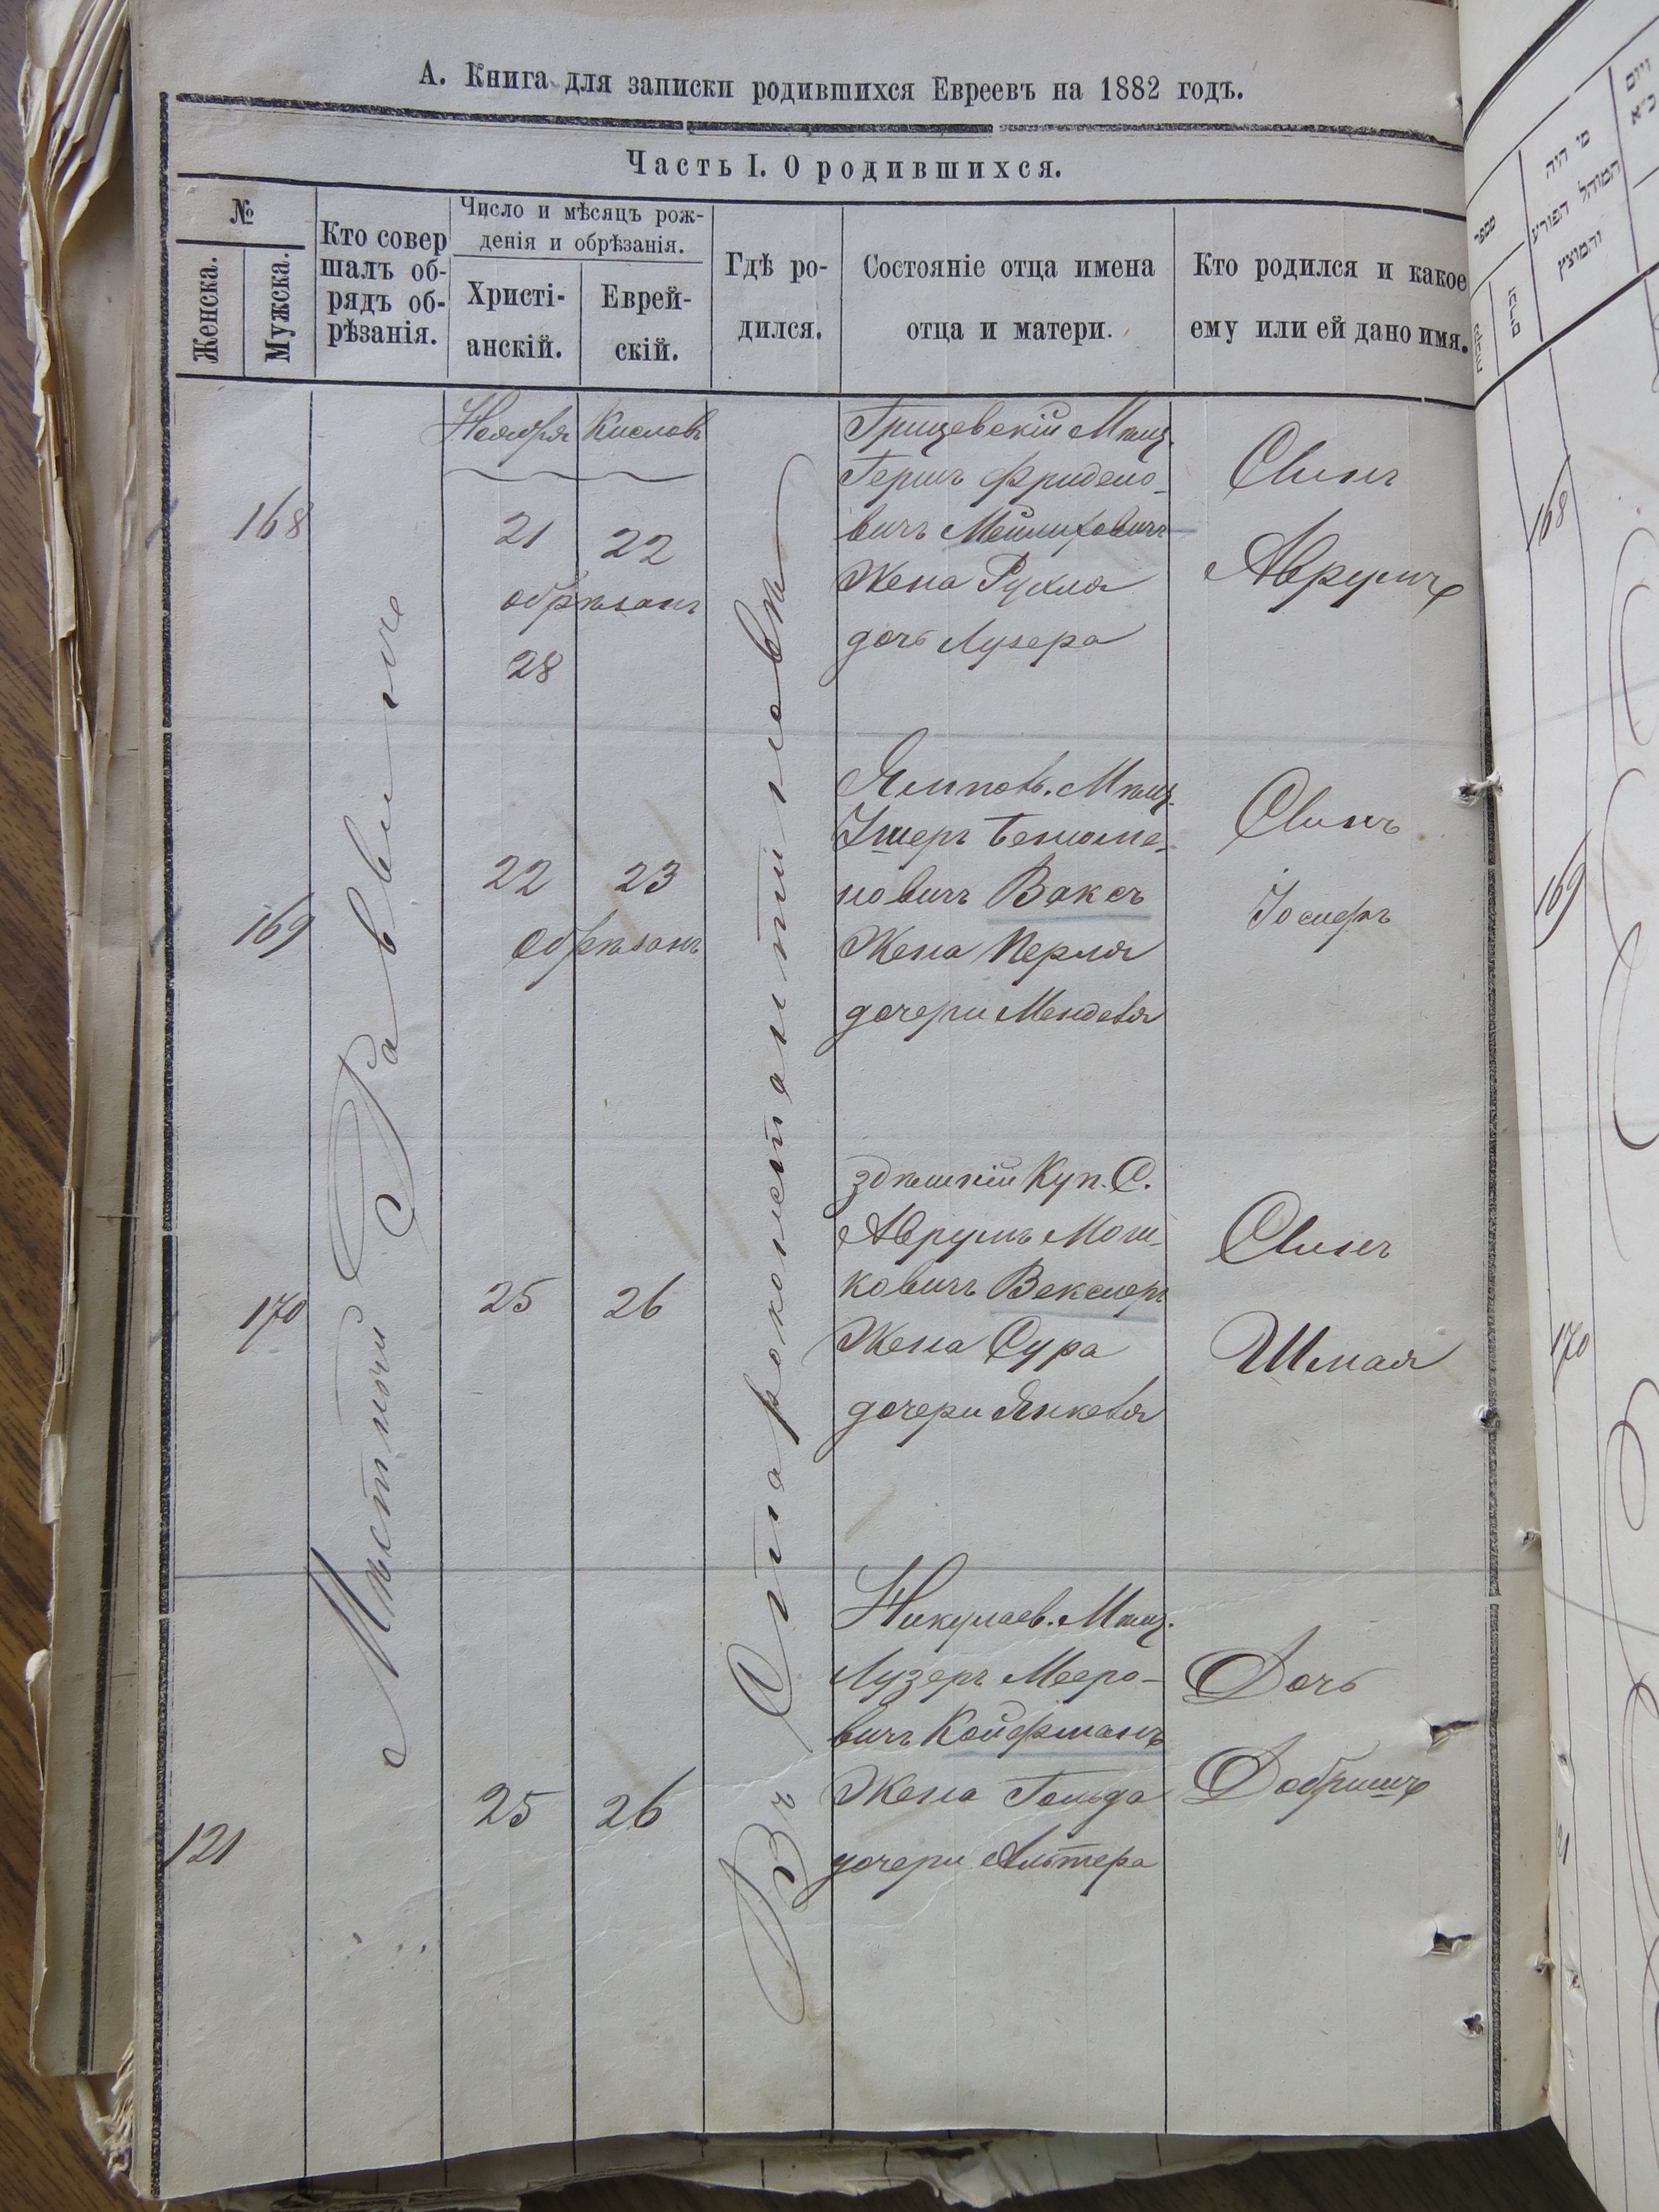 А. Книга для записки родившихся Евреевъ на 1882 годъ.
Часть I. О родившихся.
№
Женска.
Мужска.
Кто совер
шалъ об-
рядъ об-
рѣзанія.
Число и мѣсяцъ рож-
денія и обрѣзанія.
Христі-
анскій.
Еврей-
скій.
Гдѣ ро-
дился.
Состояніе отца имена
отца и матери.
Кто родился и какое
ему или ей дано имя.
Мѣстный Раввинъ
Въ Староконстантиновѣ
Ноября
Кислевъ
168
21
22
обрѣзанъ
28
Грицевскій Мѣщ.
Гершъ Фридело-
вичъ Мейлиховичъ
Жена Рухля
дочь Лузера
Сынъ
Аврумъ
169
22
23
Обрѣзанъ
Ямпов. Мѣщ.
Ушеръ Бенюме-
новичъ Ваксъ
Жена Перля
дочери Менделя
Сынъ
Іосифъ
170
25
26
здѣшній Куп. С.
Аврумъ Мош-
ковичъ Векслеръ
Жена Сура
дочери Янкеля
Сынъ
Шмая
121
25
26
Николаев. Мѣщ.
Лузеръ Мееро-
вичъ Койфманъ
Жена Гольда
дочери Альтера
Дочь
Добришъ
מספר
מי היה
המוהל הפורע
והמוצץ
168
169
170